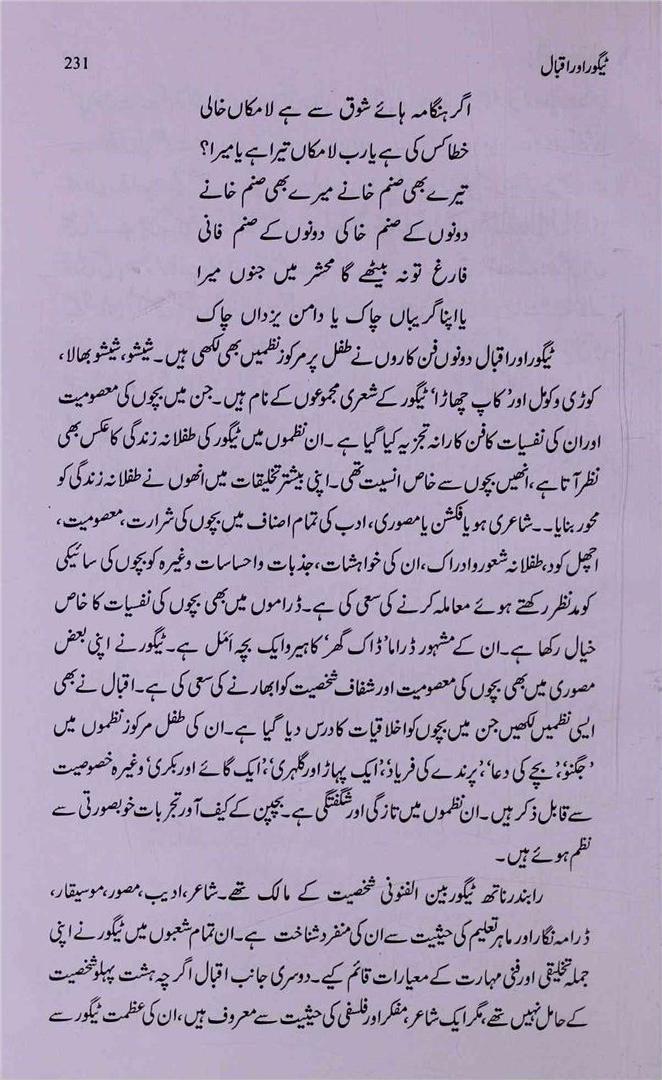 ٹیگور اور اقبال 231
اگر ہنگامہ ہائے شوق سے ہے لامکاں خالی
خطا کس کی ہے یا رب لامکاں تیرا ہے یا میرا؟
تیرے بھی صنم خانے میرے بھی صنم خانے
دونوں کے صنم خاکی دونوں کے صنم فانی
فارغ تو نہ بیٹھے گا محشر میں جنوں میرا
یا اپنا گریباں چاک یا دامن یزداں چاک
ٹیگور اور اقبال دونوں فن کاروں نے طفل پر مرکوز نظمیں بھی لکھی ہیں۔ شیشو، شیشو بھالا،
کوڑی و کومل اور 'کاپ چھاڑا' ٹیگور کے شعری مجموعوں کے نام ہیں۔ جن میں بچوں کی معصومیت
اور ان کی نفسیات کا فن کارانہ تجزیہ کیا گیا ہے۔ ان نظموں میں ٹیگور کی طفلانہ زندگی کا عکس بھی
نظر آتا ہے، انھیں بچوں سے خاص انسیت تھی۔ اپنی بیشتر تخلیقات میں انھوں نے طفلانہ زندگی کو
محور بنایا۔۔ شاعری ہو یا فکشن یا مصوری، ادب کی تمام اصناف میں بچوں کی شرارت، معصومیت،
اچھل کود، طفلانہ شعور و ادراک، ان کی خواہشات، جذبات و احساسات وغیرہ کو بچوں کی سائیکی
کو مدنظر رکھتے ہوئے معاملہ کرنے کی سعی کی ہے۔ ڈراموں میں بھی بچوں کی نفسیات کا خاص
خیال رکھا ہے۔ ان کے مشہور ڈراما 'ڈاک گھر' کا ہیرو ایک بچہ اَمل ہے۔ ٹیگور نے اپنی بعض
مصوری میں بھی بچوں کی معصومیت اور شفاف شخصیت کو ابھارنے کی سعی کی ہے۔ اقبال نے بھی
ایسی نظمیں لکھیں جن میں بچوں کو اخلاقیات کا درس دیا گیا ہے۔ ان کی طفل مرکوز نظموں میں
'جگنو'، 'بچے کی دعا'، 'پرندے کی فریاد'، 'ایک پہاڑ اور گلہری'، 'ایک گائے اور بکری' وغیرہ خصوصیت
سے قابل ذکر ہیں۔ ان نظموں میں تازگی اور شگفتگی ہے۔ بچپن کے کیف آور تجربات خوبصورتی سے
نظم ہوئے ہیں۔
رابندر ناتھ ٹیگور بین الفنونی شخصیت کے مالک تھے۔ شاعر، ادیب، مصور، موسیقار،
ڈرامہ نگار اور ماہر تعلیم کی حیثیت سے ان کی منفرد شناخت ہے۔ ان تمام شعبوں میں ٹیگور نے اپنی
جملہ تخلیقی اور فنی مہارت کے معیارات قائم کیے۔ دوسری جانب اقبال اگرچہ ہشت پہلو شخصیت
کے حامل نہیں تھے، مگر ایک شاعر، مفکر اور فلسفی کی حیثیت سے معروف ہیں، ان کی عظمت ٹیگور سے